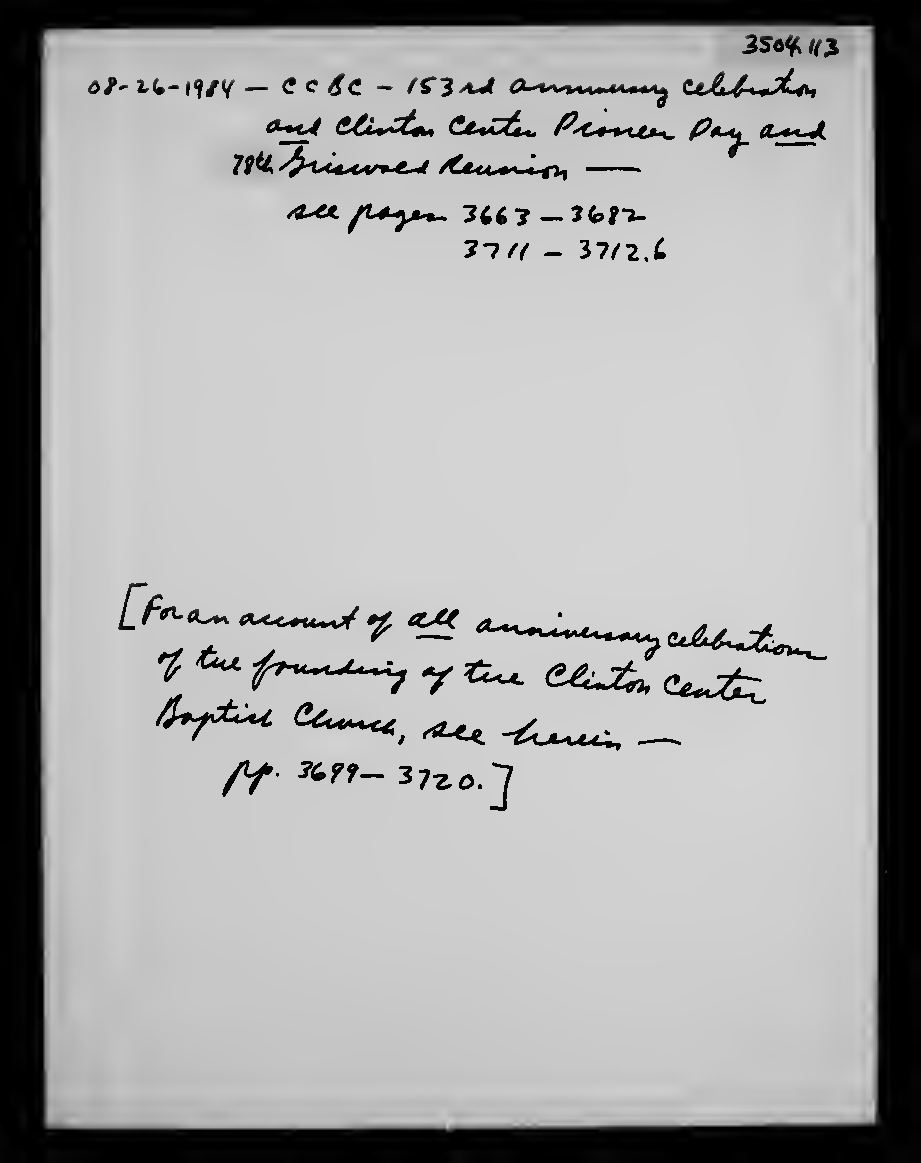 3504.113
08-26-1984 — CCBC — 153rd anniversary celebration
and Clinton Center Pioneer Day and
78th Griswold Reunion —
see pages 3663 — 3682
3711 — 3712.6
[For an account of all anniversary celebrations
of the founding of the Clinton Center
Baptist Church, see herein —
pp. 3699 — 3720.]